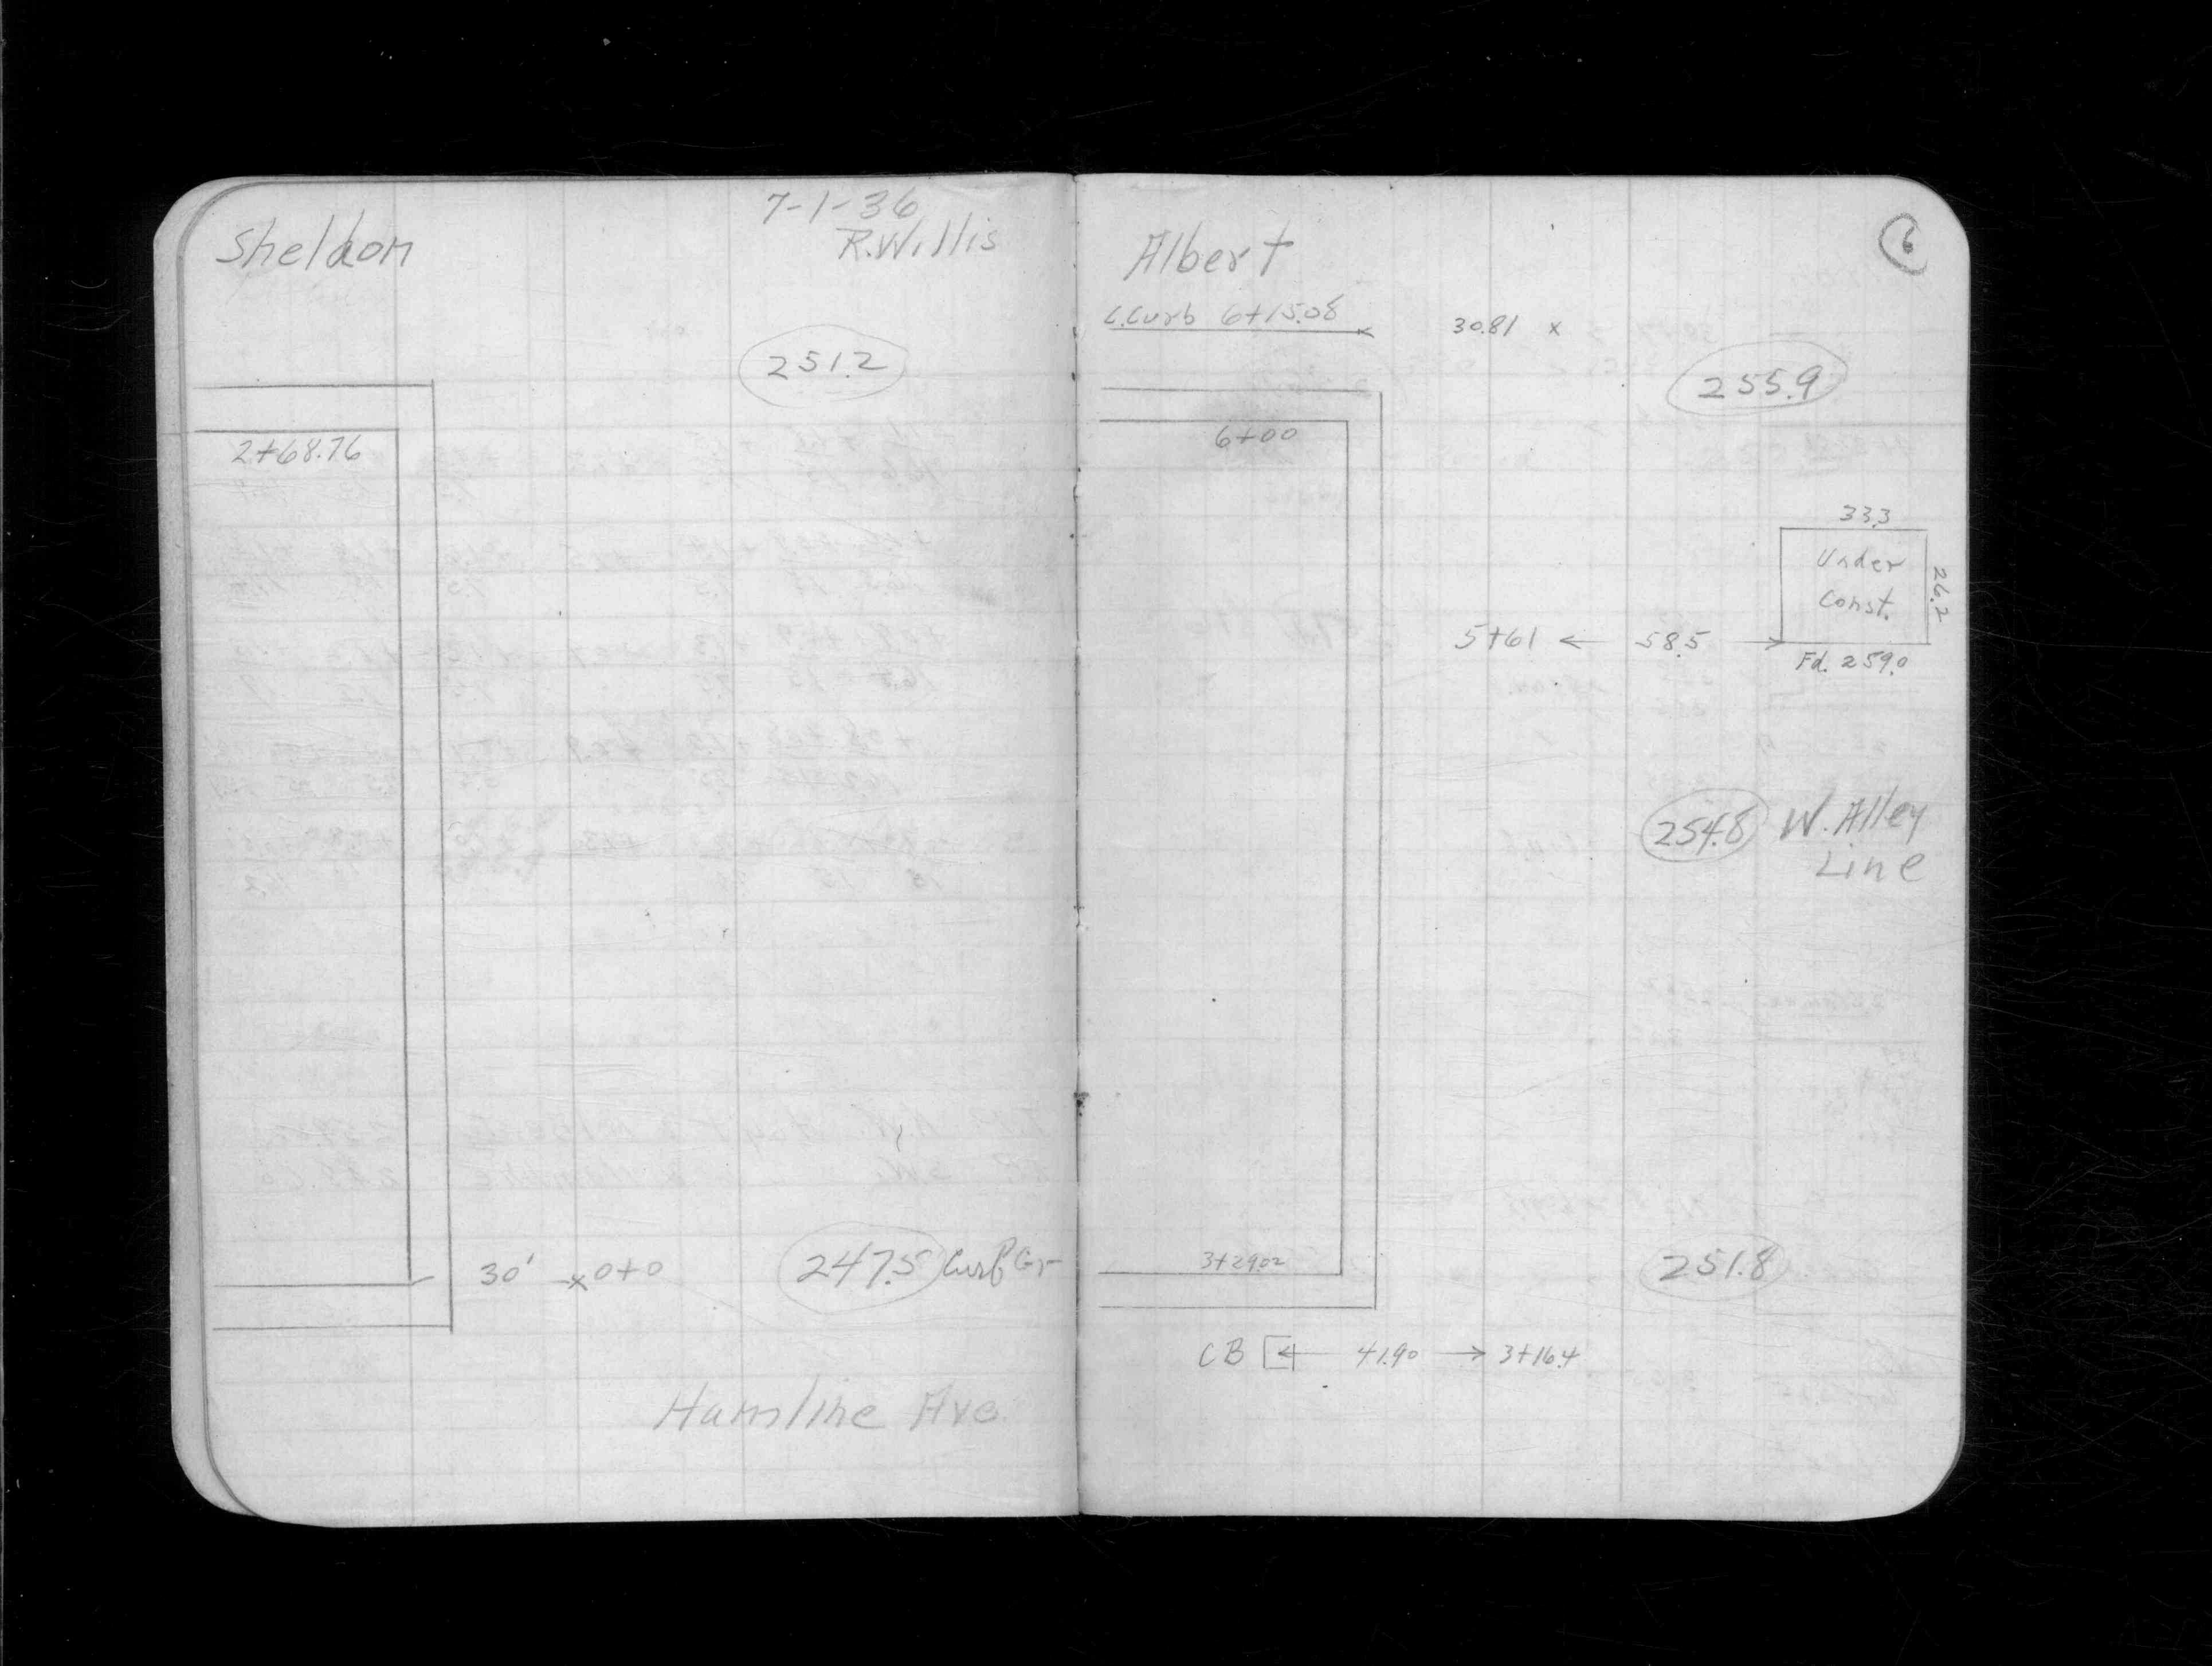 7-1-36
Sheldon
R. Willis
251.2
2+68.76
30' x 0+0
247.5 Curb Gr
Hamline Ave.
6
Albert
C.Curb 6+15.08
30.81 x
255.9
6+00
33.3
Under
Const.
26.2
5+61 ← 58.5 →
Fd. 259.0
254.8 W. Alley
Line
3+29.02
251.8
CB ← 41.90 → 3+16.4